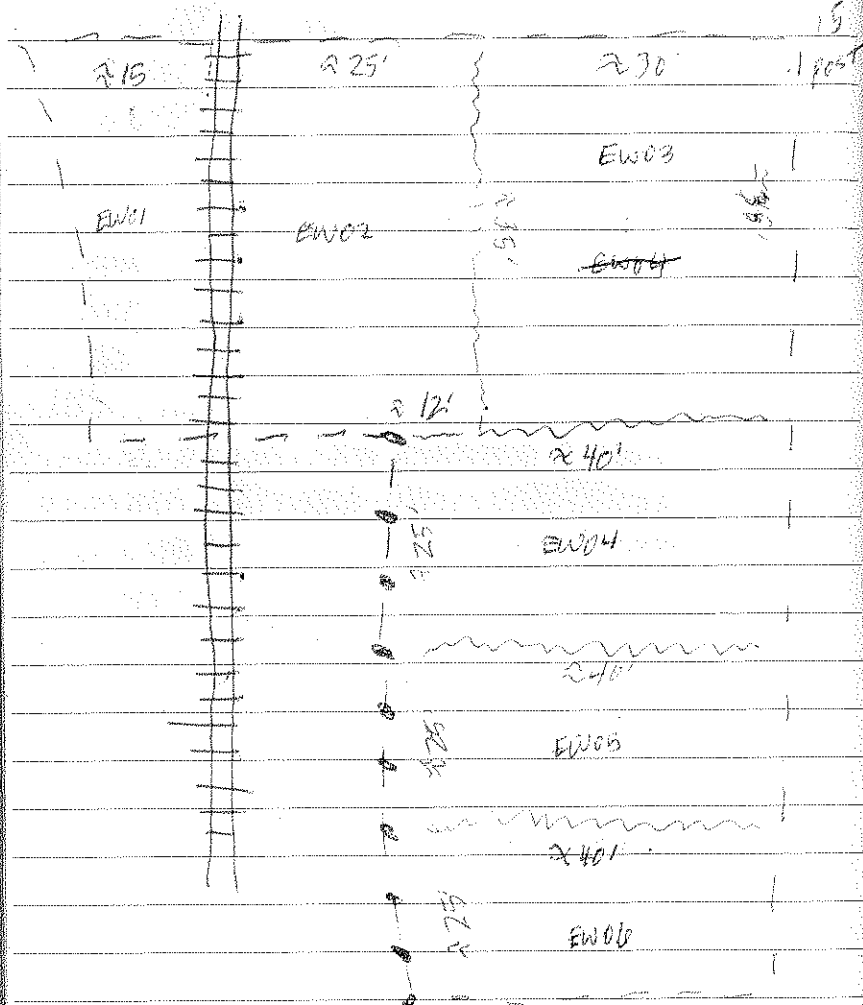 15
≈ 15 ≈ 25' ≈ 30' post
EW03
EW01 EW02 ≈ 35'
EW04
≈ 12'
≈ 40'
≈ 25' EW04
≈ 40'
≈ 25' EW05
≈ 40'
≈ 25' EW06